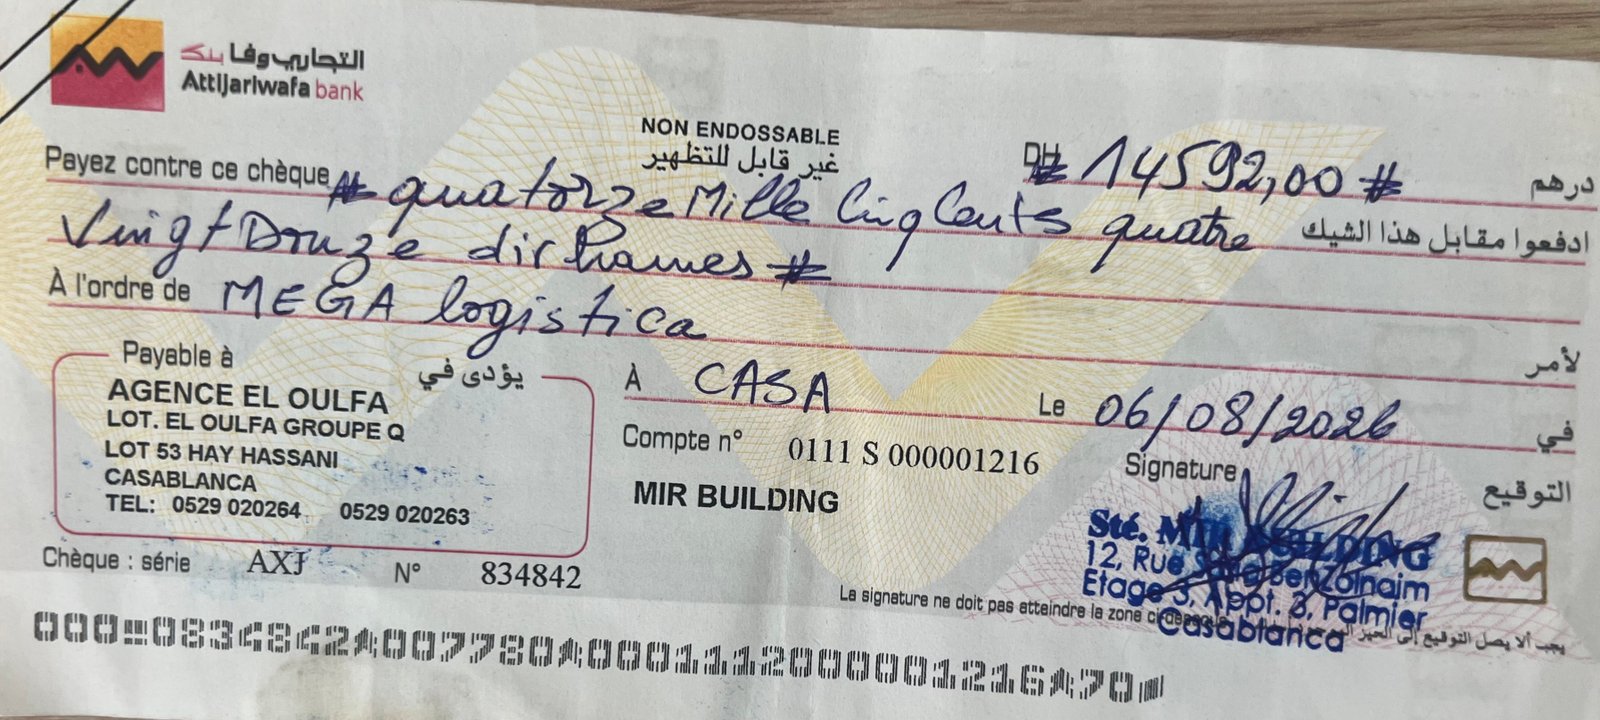 التجاري وفا بنك
Attijariwafa bank
NON ENDOSSABLE
غير قابل للتظهير
DH # 14592,00 # درهم
Payez contre ce chèque # quatorze Mille Cinq Cents quatre ادفعوا مقابل هذا الشيك
Vingt Douze dirhames #
À l'ordre de MEGA logistica لأمر
Payable à يؤدى في
AGENCE EL OULFA
LOT. EL OULFA GROUPE Q
LOT 53 HAY HASSANI
CASABLANCA
TEL: 0529 020264 0529 020263
À CASA Le 06/08/2026 في
Compte n° 0111 S 000001216
MIR BUILDING
Signature التوقيع
Sté. MIR BUILDING
12, Rue Benzolnaim
Etage 3, Appt. 3, Palmier
Casablanca
Chèque : série AXJ N° 834842
La signature ne doit pas atteindre la zone ci-dessous
يجب ألا يصل التوقيع إلى الحيز
000 0834842 007780 0001112000001216 70